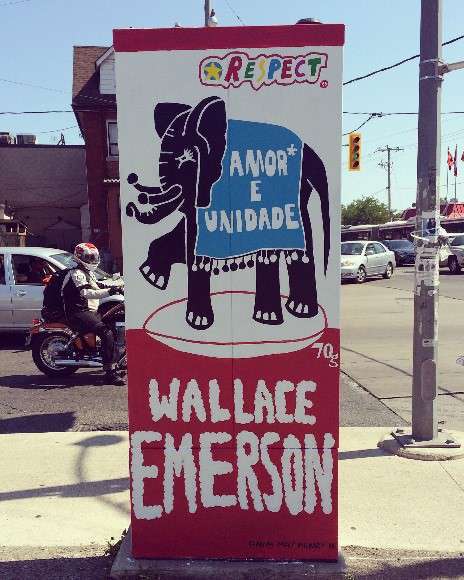 RESPECT
AMOR*
E
UNIDADE
70s
WALLACE
EMERSON